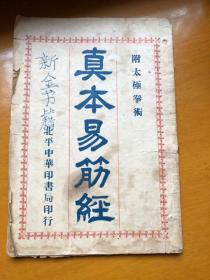 附太極拳術
真本易筋經
北平中華印書局印行